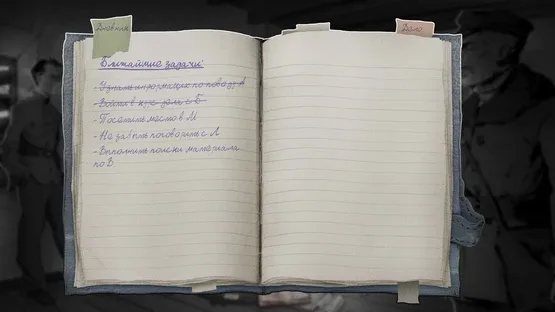 Дневник
Дело
Ближайшие задачи:
- Узнать информацию по поводу А
- Войти в курс дела с Б
- Посетить место в М
- Не забыть поговорить с Л
- Выполнить поиски материала
по В